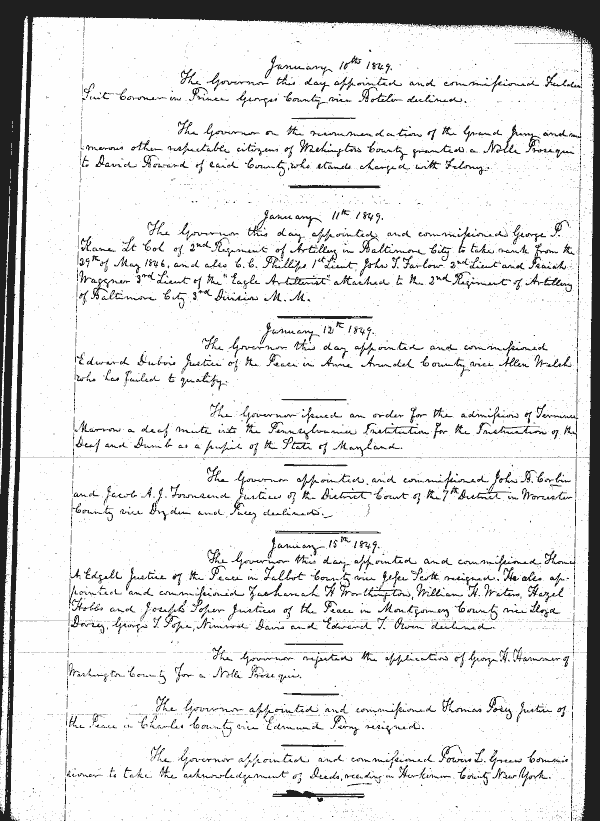 January 10th 1849.
The Governor this day appointed and commissioned Fielder
Suit Coroner in Prince Georges County vice Boteler declined.
The Governor on the recommendation of the Grand Jury and nu
merous other respectable citizens of Washington County granted a Nolle Prosequi
to David Howard of said County, who stands charged with Felony.
January 11th 1849.
The Governor this day appointed and commissioned George P.
Kane Lt Col of 2nd Regiment of Artillery in Baltimore City to take rank from the
29th of May 1846, and also C. C. Phillips 1st Lieut, John T. Farlow 2nd Lieut and Isaiah
Waggner 3rd Lieut of the "Eagle Artillerist" attached to the 2nd Regiment of Artillery
of Baltimore City 3rd Division M. M.
January 12th 1849.
The Governor this day appointed and commissioned
Edward Dubois Justice of the Peace in Anne Arundel County vice Allen Walsh
who has failed to qualify.
The Governor issued an order for the admission of Terrence
Marrow a deaf mute into the Pennsylvania Institution for the Instruction of the
Deaf and Dumb as a pupil of the State of Maryland.
The Governor appointed and commissioned John B. Corbin
and Jacob A. J. Townsend Justices of the District Court of the 7th District in Worcester
County vice Dryden and declined.
January 15th 1849.
The Governor this day appointed and commissioned Thomas
A Edgell Justice of the Peace in Talbot County vice Jesse Scott resigned. He also ap-
pointed and commissioned Zachariah H Worthington, William H. Waters, Hazel
Hobbs and Joseph Soper Justices of the Peace in Montgomery County vice Lloyd
Dorsey, George T. Pope, Nimrod Davis and Edward T. Owen declined.
The Governor rejected the application of George H. Hammer of
Washington County for a Nolle Prosequi.
The Governor appointed and commissioned Thomas Posey Justice of
the Peace in Charles County vice Edmund Perry resigned.
The Governor appointed and commissioned Powers L. Green Commis
sioner to take the acknowledgement of Deeds, residing in Herkimer County New York.